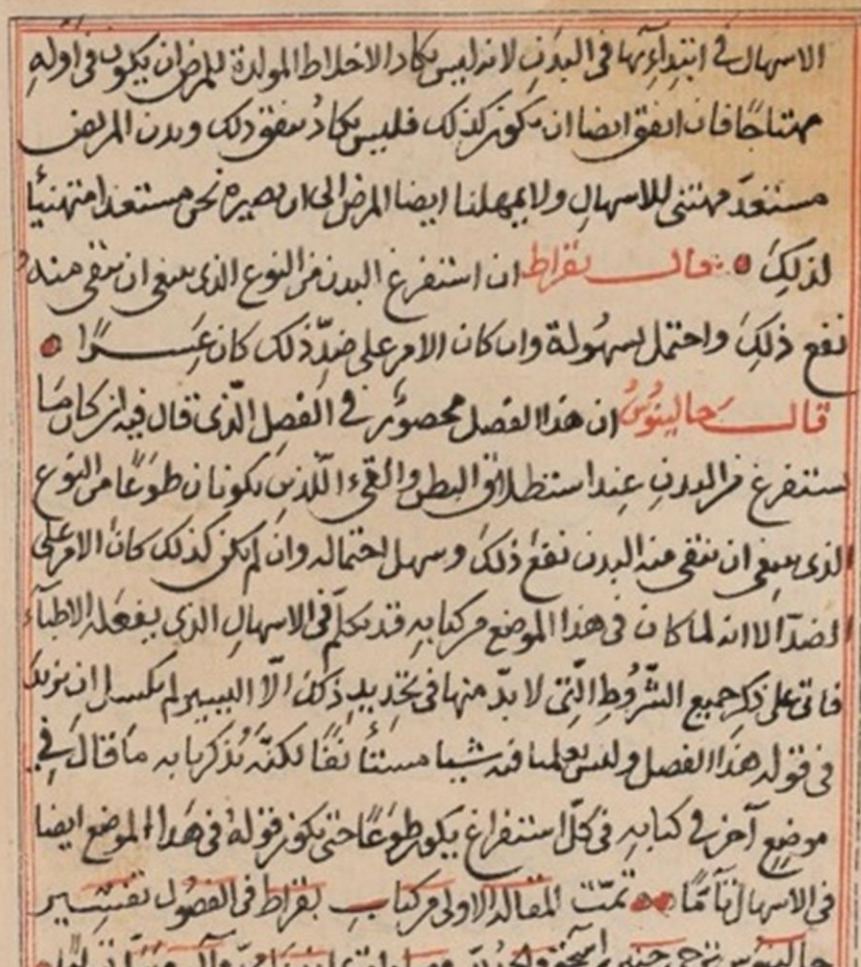 الاسهال في ابتدائها في البدن لانه ليس يكاد الاخلاط المولدة للمرض ان يكون في اوله
مهتاجًا فان اتفق ايضا ان يكون كذلك فليس يكادُ يتفق ذلك وبدن المريض
مستعدّ مهتنئ للاسهالِ ولا يمهلنا ايضا المرض الى ان نصيره نحن مستعدا متهنيئًا
لذلكَ قال بقراط ان استفرغ البدن من النوع الذي ينبغي ان ينقى منه
نفع ذلكَ واحتمل بسهُولة وان كان الامر على ضدّ ذلك كان عَسِرًا
قال جالينوُسُ ان هذا الفصل محصورٌ في الفصل الّذي قال فيه ان كان ما
يستفرغ من البدنِ عِند استطلاق البطن والقيء اللّذينِ يكونان طوعًا من النوع
الذي ينبغي ان ينقى منه البدن نفعَ ذلكَ وسهل احتماله وان لم يكن كذلك كان الامر على
الضدّ الا انه لما كان في هذا الموضع من كتابهِ قد تكلّم في الاسهالِ الذي يفعَله الاطبآء
فاتى على ذكرِ جميع الشّرُوطِ الّتي لا بدّ منها في تحديدِ ذلكَ الّا اليسير لم يكسل ان يزيد
في قوله هذا الفصل وليس يعلمنا فيه شيا مستأنفًا لكنّه يُذكرنا به ما قالَ في
موضعٍ آخر في كتابهِ في كلّ استفراغ يكون طوَعًا حتى يكون قولهُ في هَذا الموضع ايضا
في الاسهال تآمًّا تمّت المقالة الاولى من كتابِ بقراط في الفصُول تفسير
جالينوس ترجمة حنين بن اسحق